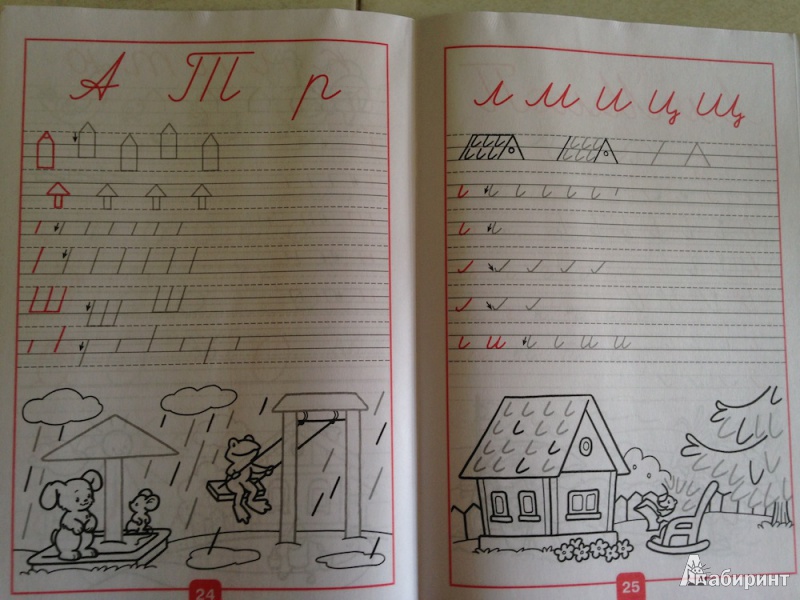 А Т р
л м и ц щ
24
25
Лабиринт